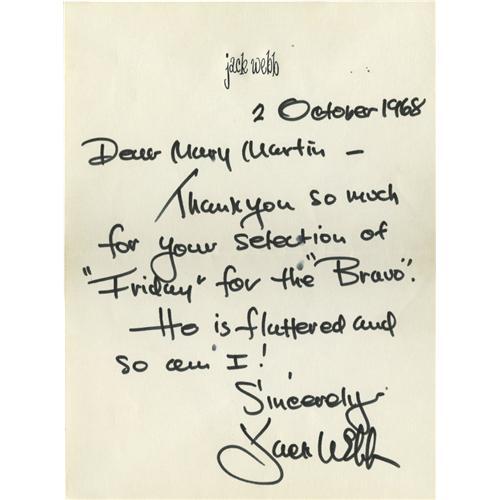 jack webb
2 October 1968
Dear Mary Martin -
Thank you so much
for your selection of
"Friday" for the "Bravo".
He is flattered and
so am I!
Sincerely
Jack Webb